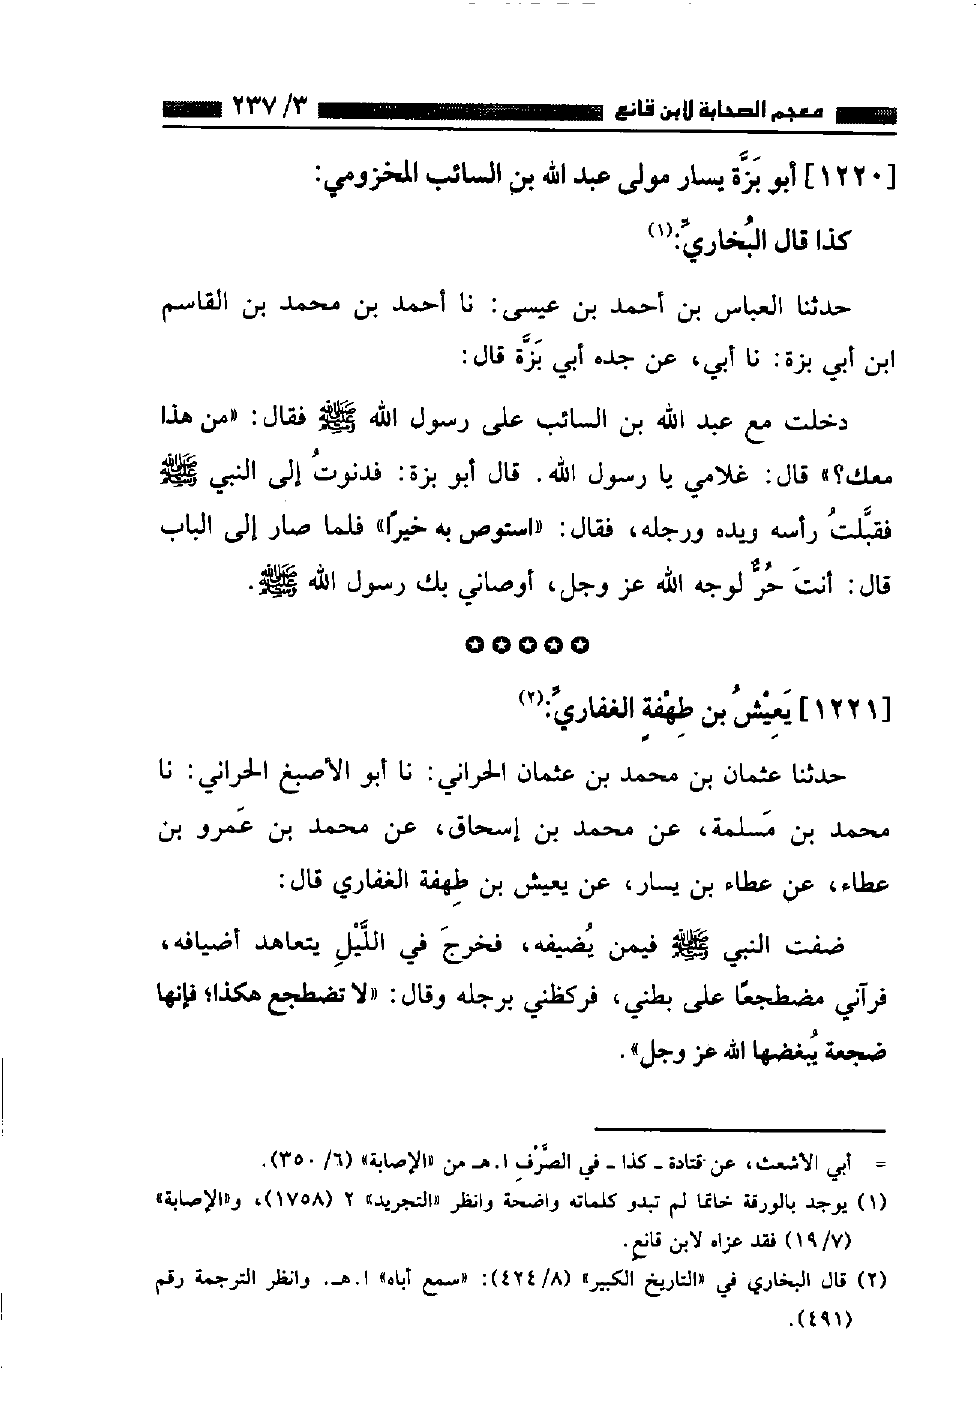 معجم الصحابة لابن قانع ٣/ ٢٣٧
[١٢٢٠] أبو بَزَّة يسار مولى عبد الله بن السائب المخزومي:
كذا قال البُخاريِّ:(١)
حدثنا العباس بن أحمد بن عيسى: نا أحمد بن محمد بن القاسم
ابن أبي بزة: نا أبي، عن جده أبي بَزَّة قال:
دخلت مع عبد الله بن السائب على رسول الله ﷺ فقال: «من هذا
معك؟» قال: غلامي يا رسول الله. قال أبو بزة: فدنوتُ إلى النبي ﷺ
فقبَّلتُ رأسه ويده ورجله، فقال: «استوص به خيرًا» فلما صار إلى الباب
قال: أنتَ حُرٌّ لوجه الله عز وجل، أوصاني بك رسول الله ﷺ.
✪✪✪✪✪
[١٢٢١] يَعِيْشُ بن طِهْفةِ الغفاريِّ:(٢)
حدثنا عثمان بن محمد بن عثمان الحراني: نا أبو الأصبغ الحراني: نا
محمد بن مَسلمة، عن محمد بن إسحاق، عن محمد بن عَمرو بن
عطاء، عن عطاء بن يسار، عن يعيش بن طِهفة الغفاري قال:
ضفت النبي ﷺ فيمن يُضيفه، فخرجَ في اللَّيْلِ يتعاهد أضيافه،
فرآني مضطجعًا على بطني، فركظني برجله وقال: «لا تضطجع هكذا؛ فإنها
ضجعة يُبغضها الله عز وجل».
= أبي الأشعث، عن قتادة ـ كذا ـ في الصَّرْفِ ا.هـ من «الإصابة» (٦/ ٣٥٠).
(١) يوجد بالورقة خاتمًا لم تبدو كلماته واضحة وانظر «التجريد» ٢ (١٧٥٨)، و«الإصابة»
(٧/ ١٩) فقد عزاه لابن قانع.
(٢) قال البخاري في «التاريخ الكبير» (٨/ ٤٢٤): «سمع أباه» ا.هـ. وانظر الترجمة رقم
(٤٩١).